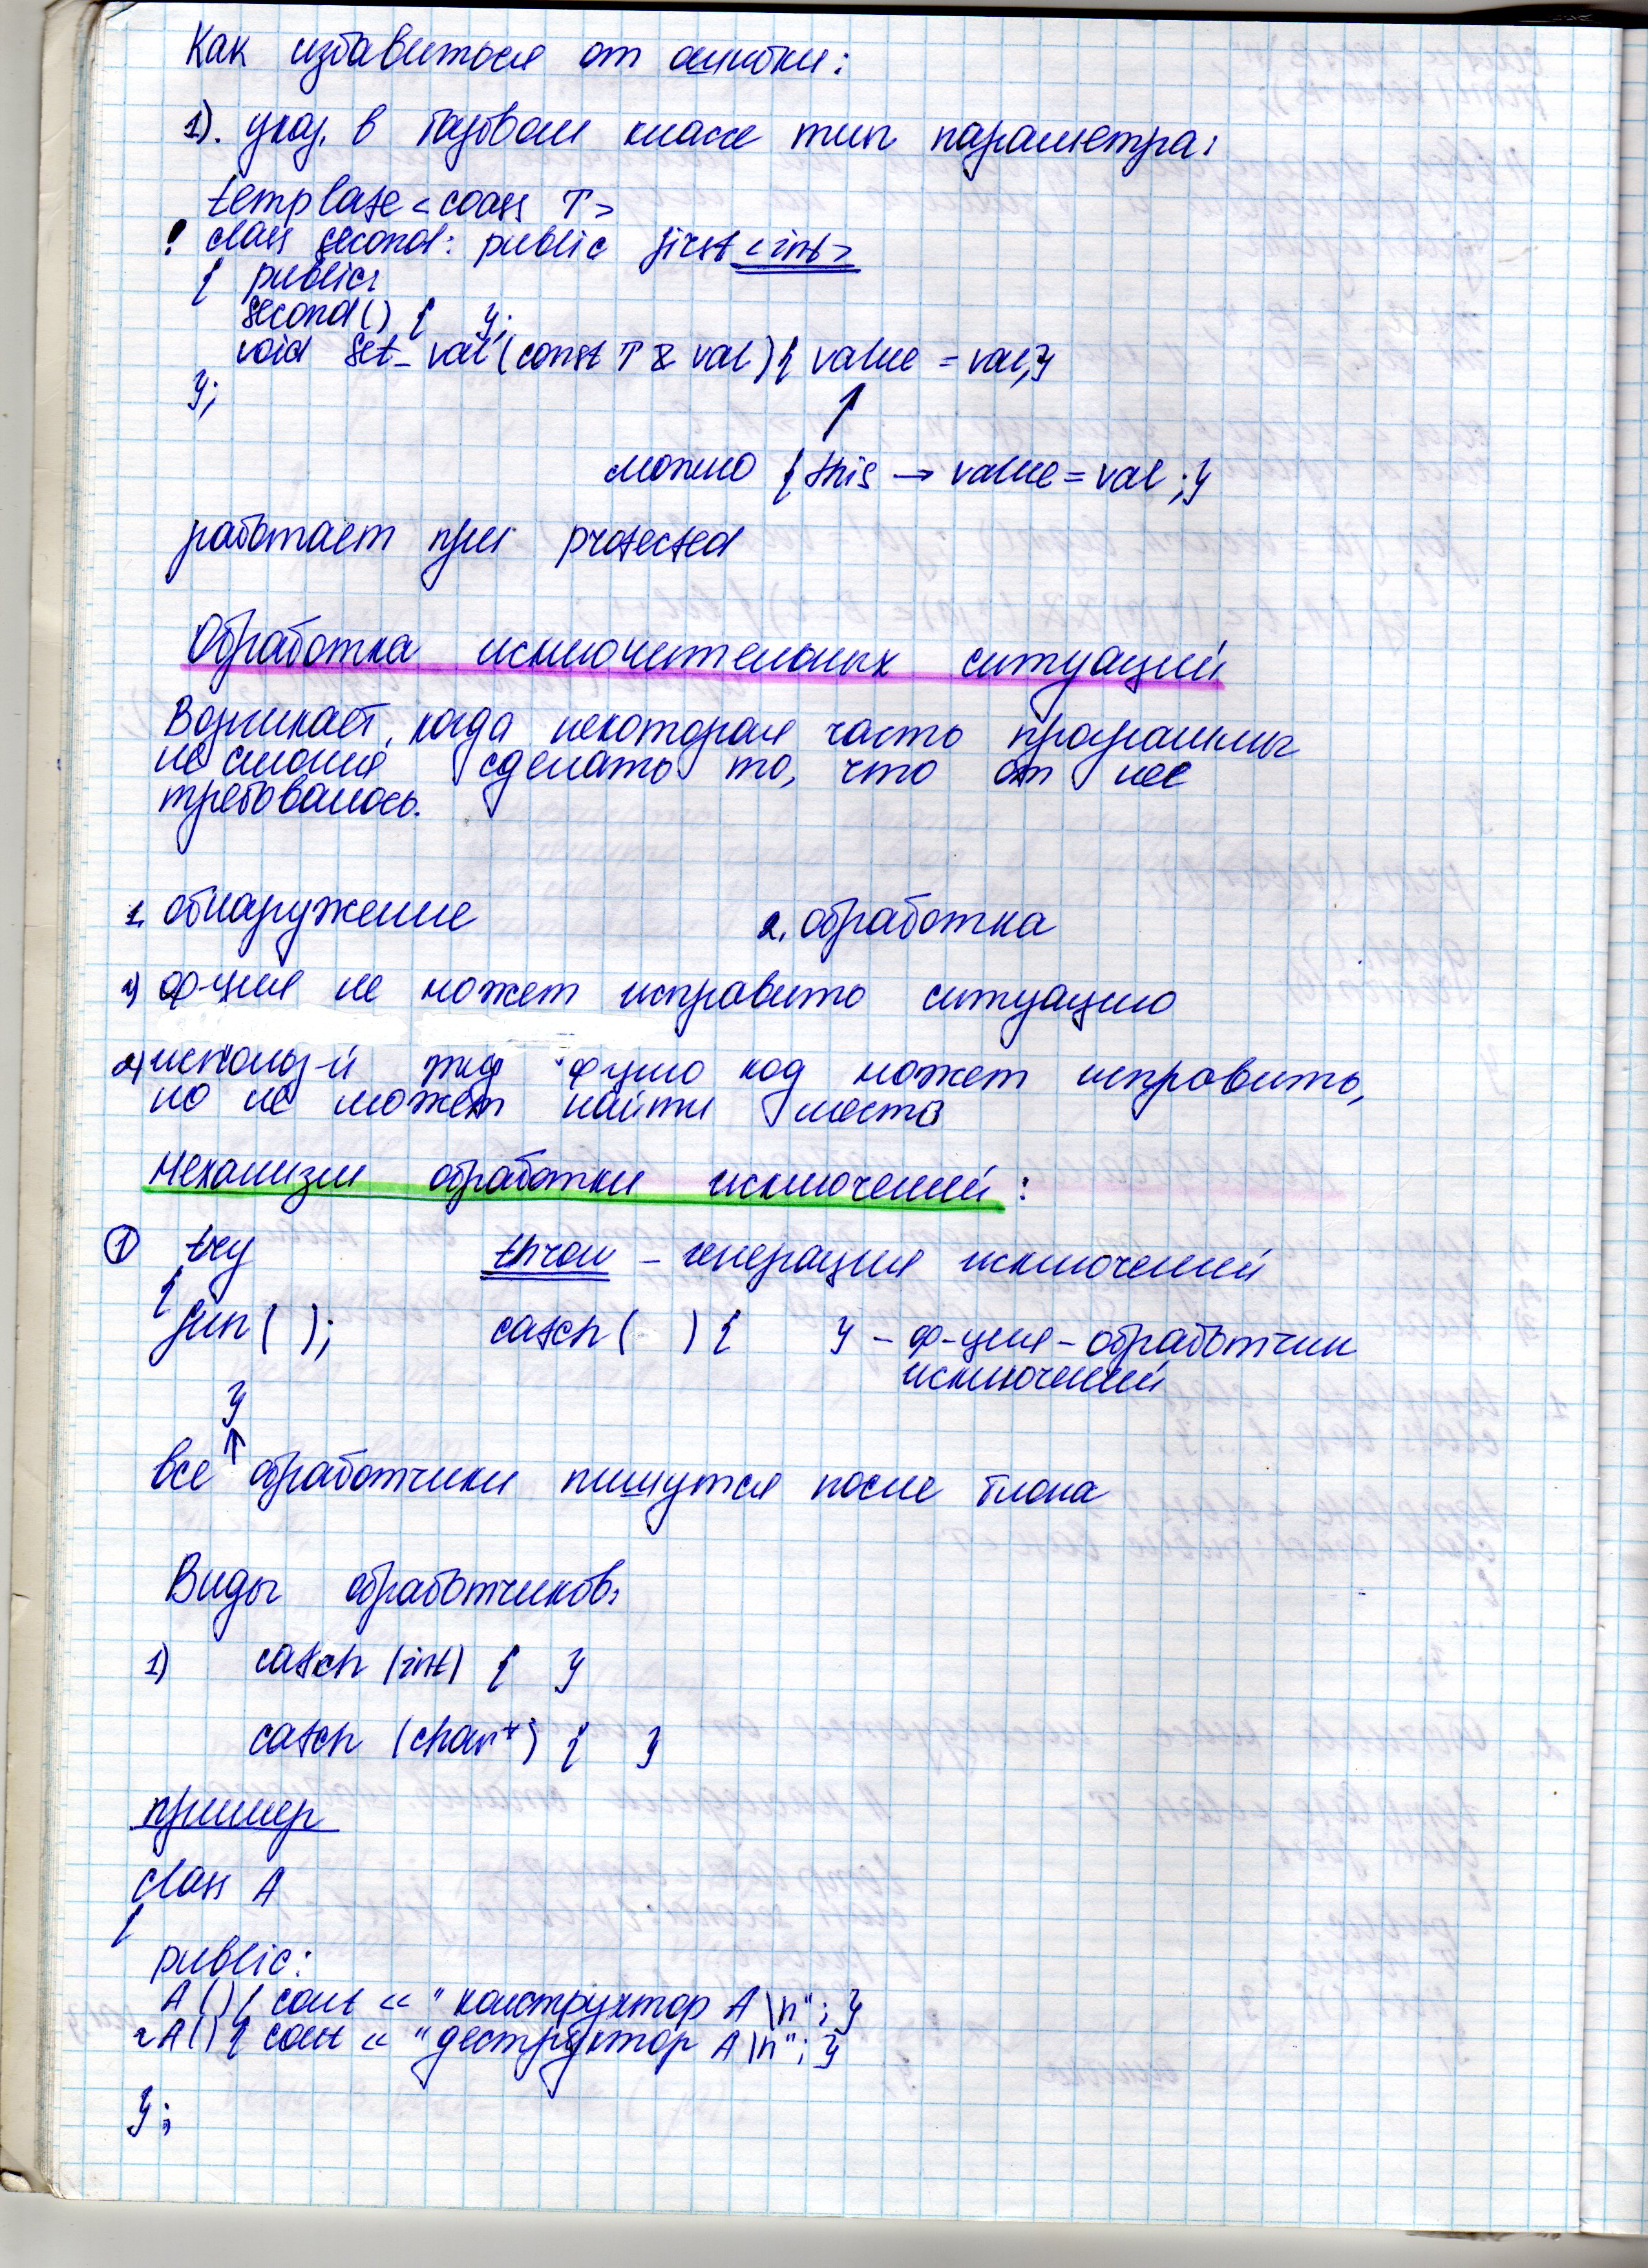 Как избавиться от ошибки:
1). указ. в базовом классе тип параметра:
template <class T>
! class second: public first <int>
{ public:
second() { };
void set_val (const T & val) { value = val; }
};
можно { this → value = val ; }
работает при protected
Обработка исключительных ситуаций
Возникает, когда некоторая часть программы
не смогла сделать то, что от нее
требовалось.
1. обнаружение 2. обработка
1) ф-ция не может исправить ситуацию
2) использ-й эту ф-цию код может исправить,
но не может найти место
Механизм обработки исключений:
① try throw – генерация исключений
{
fun ( ); catch ( ) { } – ф-ция – обработчик
исключений
}
↑
все обработчики пишутся после блока
Виды обработчиков:
1) catch (int) { }
catch (char*) { }
пример
class A
{
public:
A () { cout << "конструктор A \n"; }
~A() { cout << "деструктор A \n"; }
};